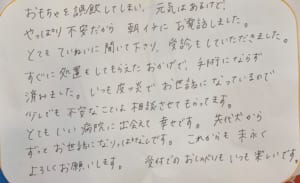 おもちゃを誤飲してしまい、元気はあるけど、
やっぱり不安だから朝イチにお電話しました。
とてもていねいに聞いて下さり、受診もしていただきました。
すぐに処置をしてもらえたおかげで、手術にならず
済みました。いつも皮ふ炎でお世話になっているので
少しでも不安なことは相談させてもらってます。
とてもいい病院に出会えて幸せです。先代犬から
ずっとお世話になりっぱなしです。これからも末永く
よろしくお願いします。受付でのおしゃべりもいつも楽しいです。